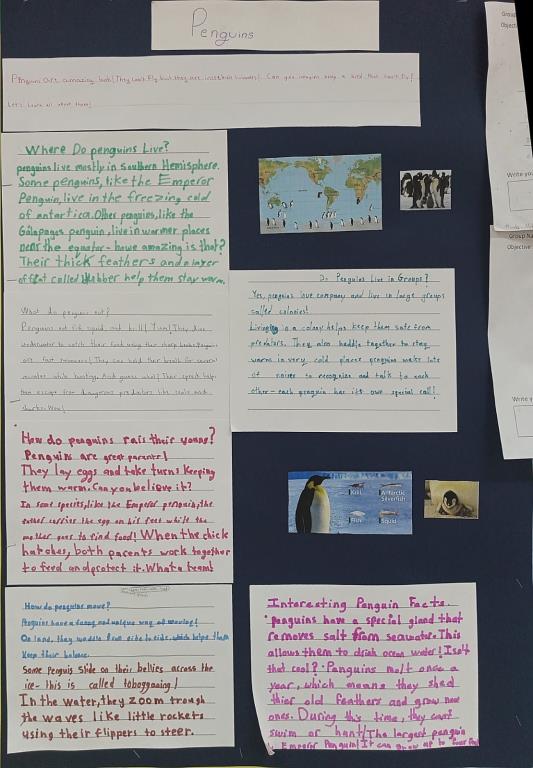 Penguins
Penguins are amazing birds! They can't fly but they are incredible swimmers! Can you imagine being a bird that can't fly?
Let's learn all about them!
Where Do penguins Live?
penguins live mostly in Southern Hemisphere.
Some penguins, like the Emperor
Penguin, live in the freezing cold
of antartica. Other penguins, like the
Galapagos penguin, live in warmer places
near the equator - howe amazing is that?
Their thick feathers and a layer
of fat called blubber help them stay warm.
What do penguins eat?
Penguins eat fish, squid, and krill! Yum! They dive
underwater to catch their food using their sharp beaks. Penguins
are fast swimmers! They can hold their breath for several
minutes while hunting. And guess what? Their speed helps
them escape from dangerous predators like seals and
sharks. Wow!
How do penguins rais their young?
Penguins are great parents!
They lay eggs and take turns keeping
them warm. Can you believe it?
In some species, like the Emperor penguin, the
father carries the egg on his feet while the
mother goes to find food! When the chick
hatches, both parents work together
to feed and protect it. What a team!
How do penguins move?
Penguins have a funny and unique way of moving!
On land, they waddle from side to side, which helps them
keep their balance.
Some penguis slide on their bellies across the
ice - this is called tobogganing!
In the water, they zoom trough
the waves like little rockets
using their flippers to steer.
Do Penguins Live in Groups?
Yes, penguins love company and live in large groups
called colonies!
Living in a colony helps keep them safe from
predators. They also huddle together to stay
warm in very cold places penguins make lots
of noises to recognize and talk to each
other - each penguin has its own special call!
Krill
Antarctic
Silverfish
Fish
Squid
Interesting Penguin Facts.
penguins have a special gland that
removes salt from seawater. This
allows them to drink ocean water! Isn't
that cool? Penguins molt once a
year, which means they shed
thier old feathers and grow new
ones. During this time, they can't
swim or hunt! The largest penguin
is Emperor Penguin! It can grow up to four feet
Group
Objecti
Write you
Group Na
Objective
Write y